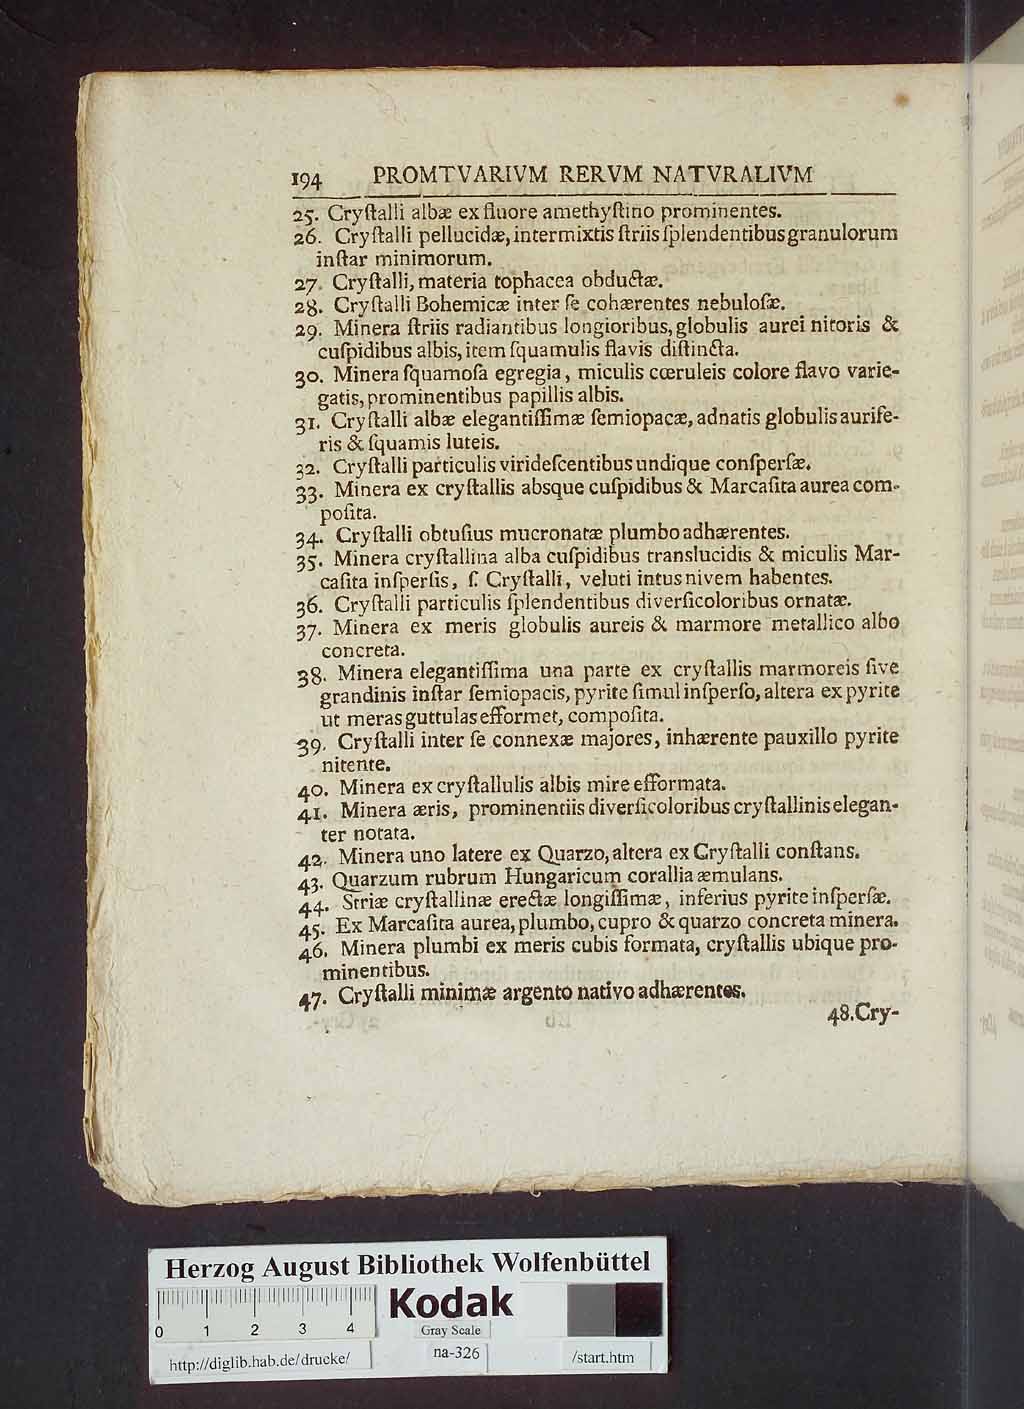 194 PROMTVARIVM RERVM NATVRALIVM
25. Cryſtalli albæ ex fluore amethyſtino prominentes.
26. Cryſtalli pellucidæ, intermixtis ſtriis ſplendentibus granulorum
inſtar minimorum.
27. Cryſtalli, materia tophacea obductæ.
28. Cryſtalli Bohemicæ inter ſe cohærentes nebuloſæ.
29. Minera ſtriis radiantibus longioribus, globulis aurei nitoris &
cuſpidibus albis, item ſquamulis flavis diſtincta.
30. Minera ſquamoſa egregia, miculis cœruleis colore flavo varie-
gatis, prominentibus papillis albis.
31. Cryſtalli albæ elegantiſſimæ ſemiopacæ, adnatis globulis aurife-
ris & ſquamis luteis.
32. Cryſtalli particulis virideſcentibus undique conſperſæ.
33. Minera ex cryſtallis absque cuſpidibus & Marcaſita aurea com-
poſita.
34. Cryſtalli obtuſius mucronatæ plumbo adhærentes.
35. Minera cryſtallina alba cuſpidibus translucidis & miculis Mar-
caſita inſperſis, ſ. Cryſtalli, veluti intus nivem habentes.
36. Cryſtalli particulis ſplendentibus diverſicoloribus ornatæ.
37. Minera ex meris globulis aureis & marmore metallico albo
concreta.
38. Minera elegantiſſima una parte ex cryſtallis marmoreis ſive
grandinis inſtar ſemiopacis, pyrite ſimul inſperſo, altera ex pyrite
ut meras guttulas efformet, compoſita.
39. Cryſtalli inter ſe connexæ majores, inhærente pauxillo pyrite
nitente.
40. Minera ex cryſtallulis albis mire efformata.
41. Minera æris, prominentiis diverſicoloribus cryſtallinis elegan-
ter notata.
42. Minera uno latere ex Quarzo, altera ex Cryſtalli conſtans.
43. Quarzum rubrum Hungaricum corallia æmulans.
44. Striæ cryſtallinæ erectæ longiſſimæ, inferius pyrite inſperſæ.
45. Ex Marcaſita aurea, plumbo, cupro & quarzo concreta minera.
46. Minera plumbi ex meris cubis formata, cryſtallis ubique pro-
minentibus.
47. Cryſtalli minimæ argento nativo adhærentes.
48. Cry-
Herzog August Bibliothek Wolfenbüttel
0 1 2 3 4
Kodak
Gray Scale
http://diglib.hab.de/drucke/
na-326
/start.htm